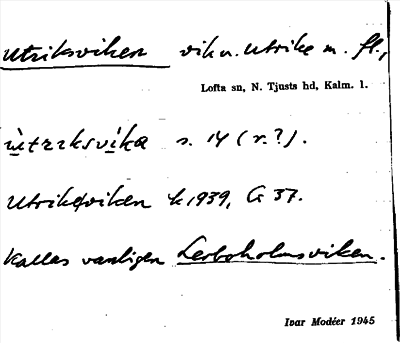 Utriksviken vik v. Utrike m. fl.,
Lofta sn, N. Tjusts hd, Kalm. l.
ùtrɩksvìka s. 14 (r.?).
Utrikeviken k 1939, G 37.
Kallas vanligen Lerboholmsviken.
Ivar Modéer 1945